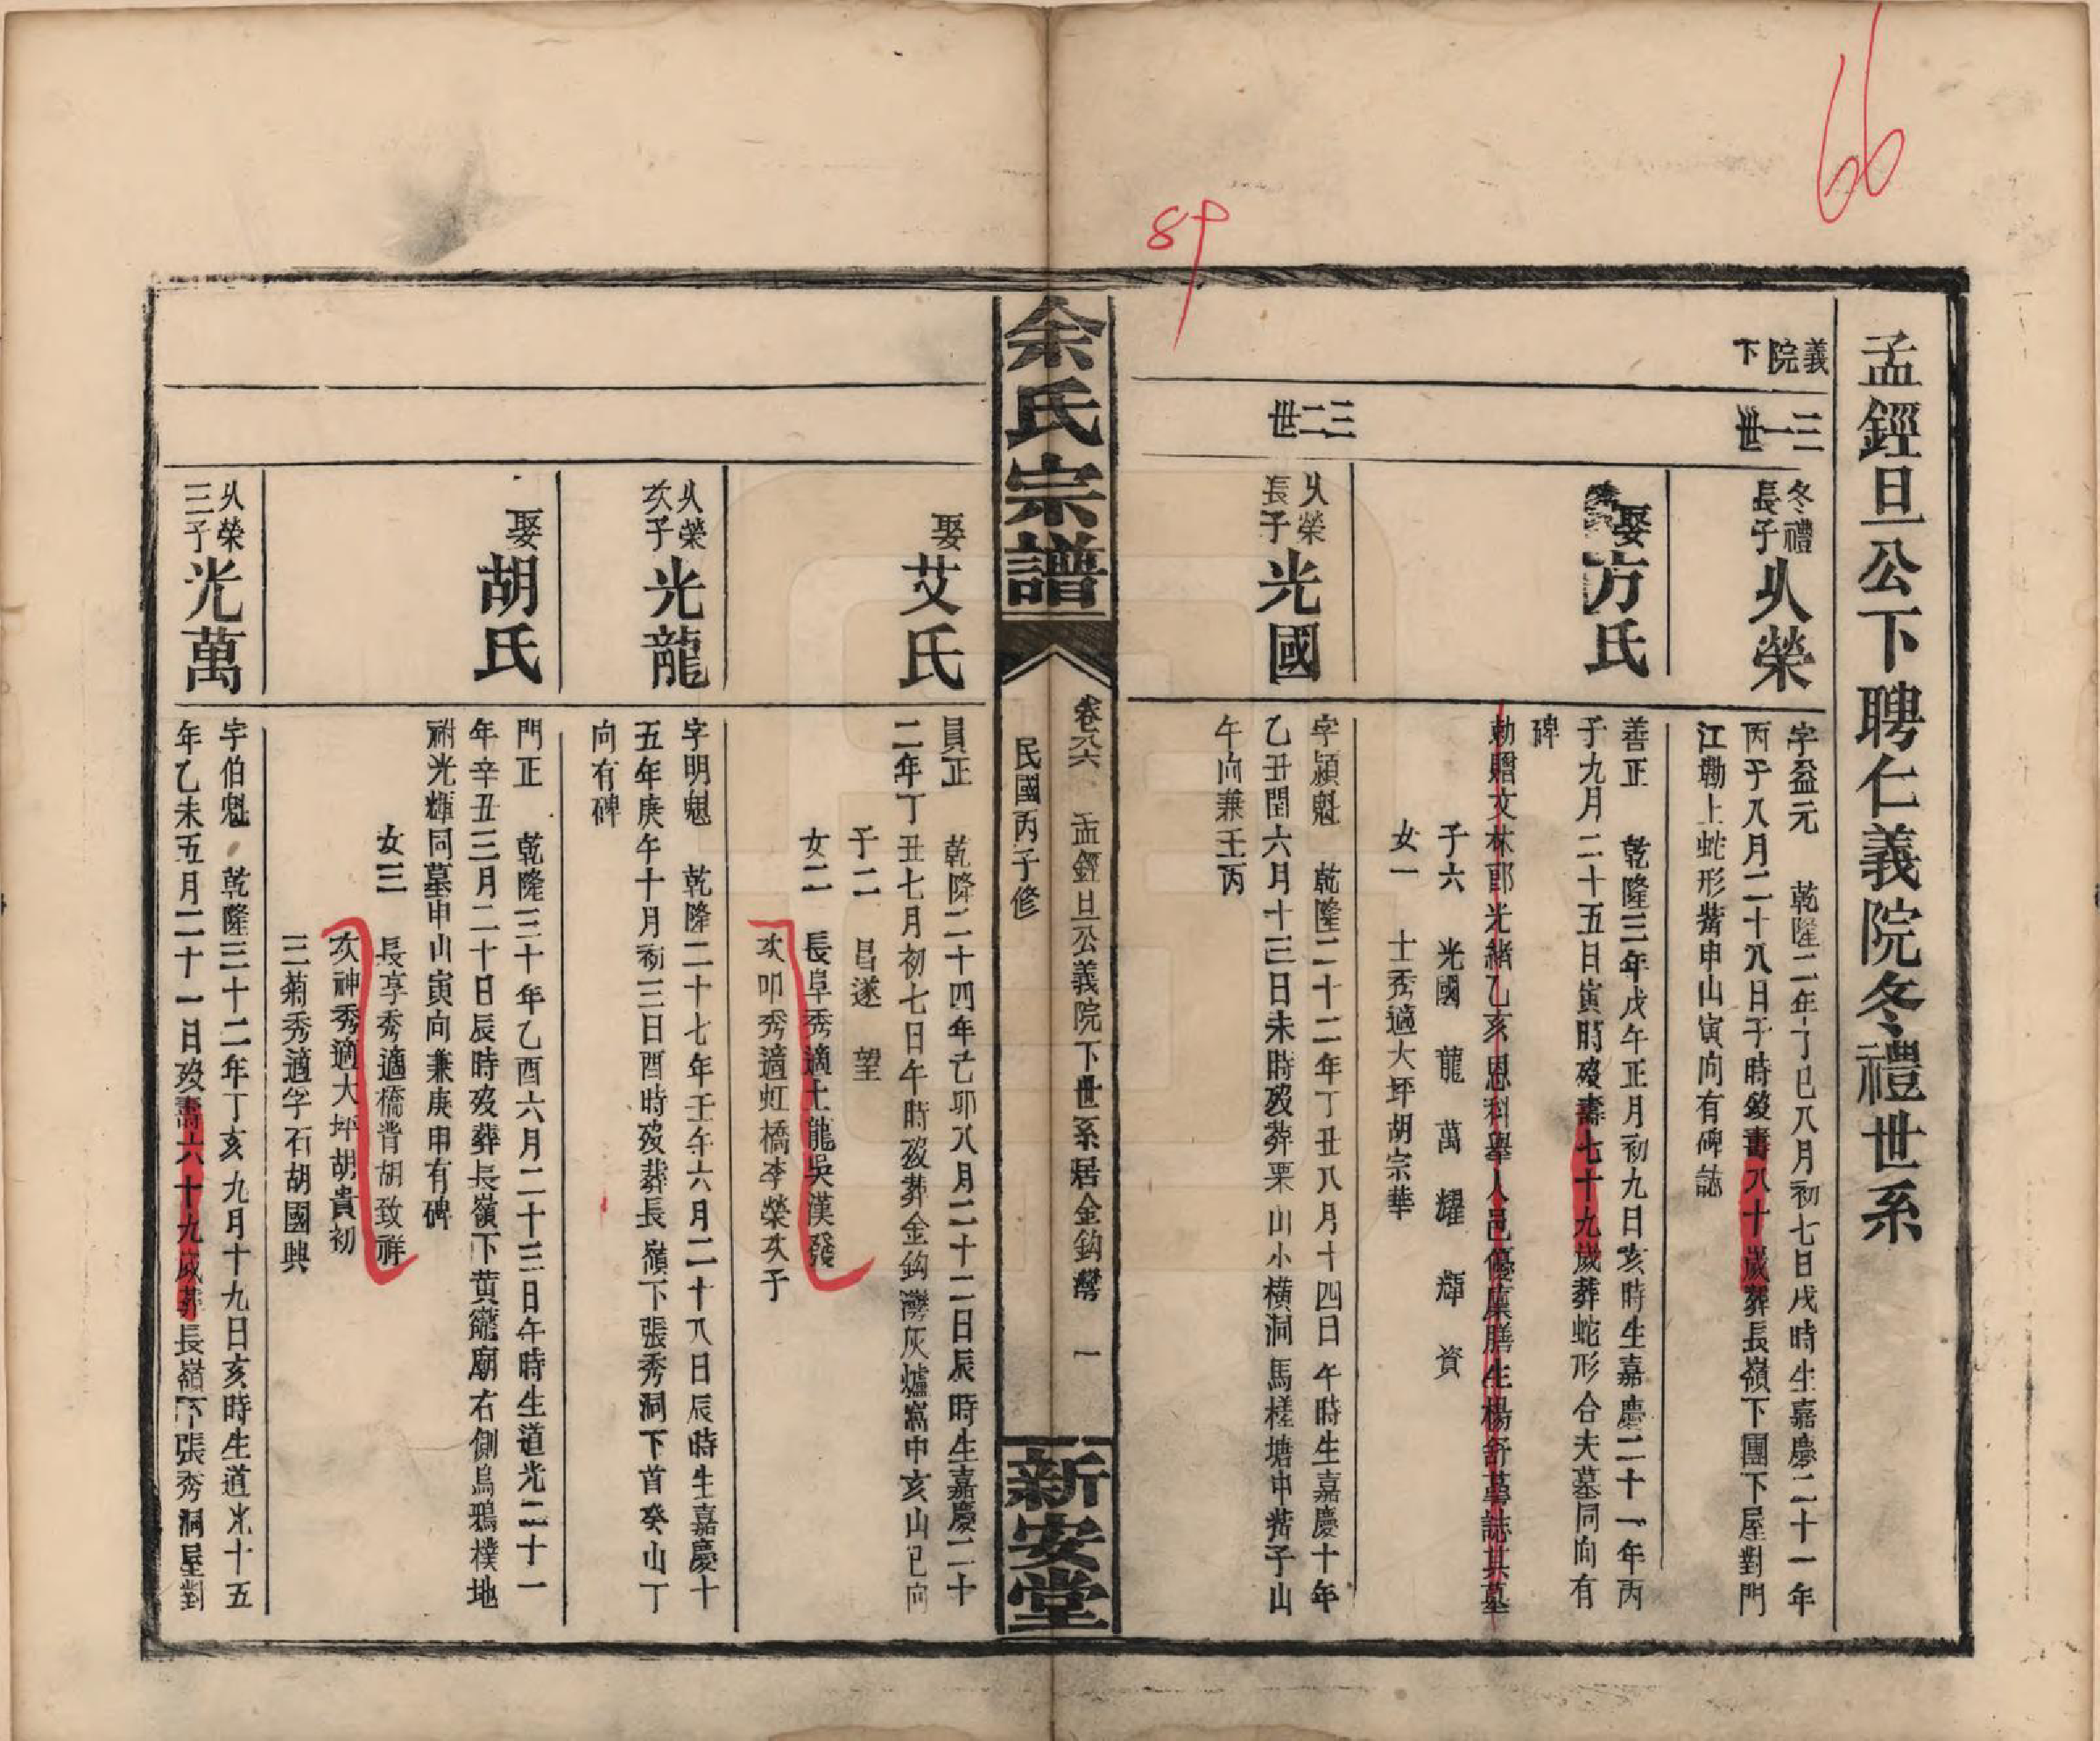 66
89
孟鏗旦公下聘仁義院冬禮世系
義院下
三一世
冬禮長子
火榮
字益元 乾隆二年丁巳八月初七日戌時生嘉慶二十一年
丙子八月二十八日子時歿壽八十歲葬長嶺下團下屋對門
江勘上蛇形觜申山寅向有碑誌
娶方氏
善正 乾隆三年戊午正月初九日亥時生嘉慶二十一年丙
子九月二十五日寅時歿壽七十九歲葬蛇形合夫墓同向有
碑
勅贈文林郎光緒乙亥恩科舉人邑優廩膳生楊舒萼誌其墓
子六 光國 龍 萬 耀 輝 資
女一 士秀適大坪胡宗華
三二世
火榮長子
光國
字潁魁 乾隆二十二年丁丑八月十四日午時生嘉慶十年
乙丑閏六月十三日未時歿葬栗山小橫洞馬槎塘中嘴子山
午向兼壬丙
余氏宗譜
卷六 孟鏗旦公義院下世系居金鈎灣 一
民國丙子修
新安堂
娶艾氏
員正 乾隆二十四年己卯八月二十二日辰時生嘉慶二十
二年丁丑七月初七日午時歿葬金鈎灣灰爐窩中亥山巳向
子二 昌遂 望
女二 長阜秀適土龍吳漢發
次叩秀適虹橋李榮次子
火榮次子
光龍
字明魁 乾隆二十七年壬午六月二十八日辰時生嘉慶十
五年庚午十月初三日酉時歿葬長嶺下張秀洞下首癸山丁
向有碑
娶胡氏
門正 乾隆三十年乙酉六月二十三日午時生道光二十一
年辛丑三月二十日辰時歿葬長嶺下黃龍廟右側烏鴉樸地
祔光輝同墓申山寅向兼庚申有碑
女三 長享秀適橋背胡致祥
次神秀適大坪胡貴初
三菊秀適孚石胡國興
火榮三子
光萬
字伯魁 乾隆三十二年丁亥九月十九日亥時生道光十五
年乙未五月二十一日歿壽六十九歲葬長嶺下張秀洞屋對